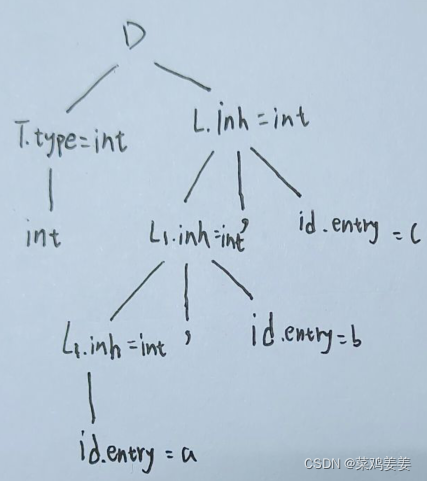 D
T.type=int
L.inh=int
int
L₁.inh=int
,
id.entry=c
L₁.inh=int
,
id.entry=b
id.entry=a
CSDN @菜鸡姜姜